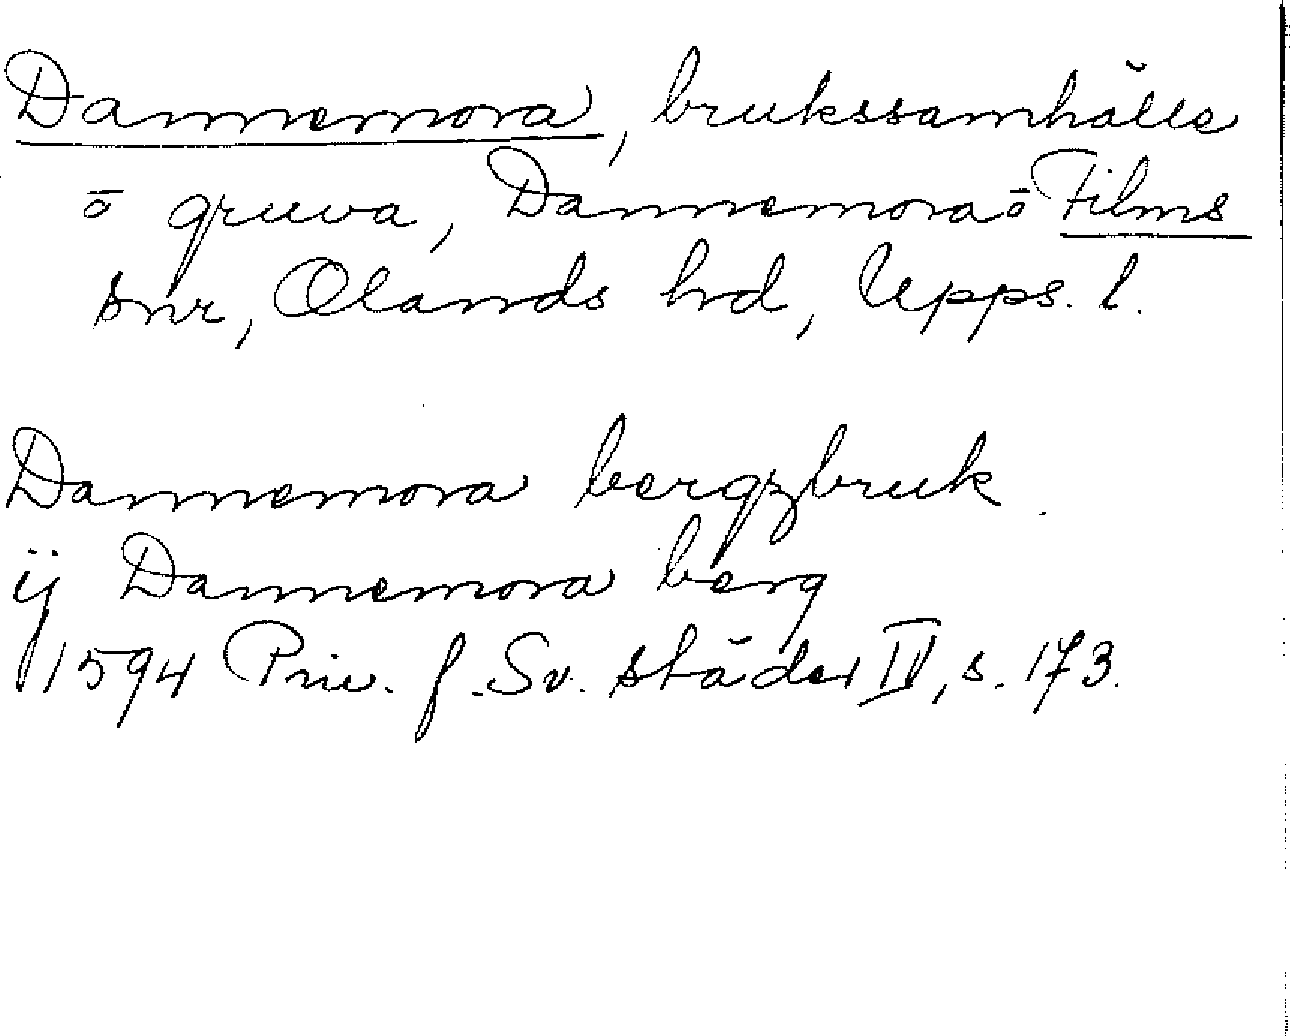 Dannemora, brukssamhälle
ō gruva, Dannemora ō Films
snr, Olands hd, Upps. l.
Dannemora bergzbruk.
ij Dannemora berg
1594 Priv. f. Sv. städer IV, s. 173.